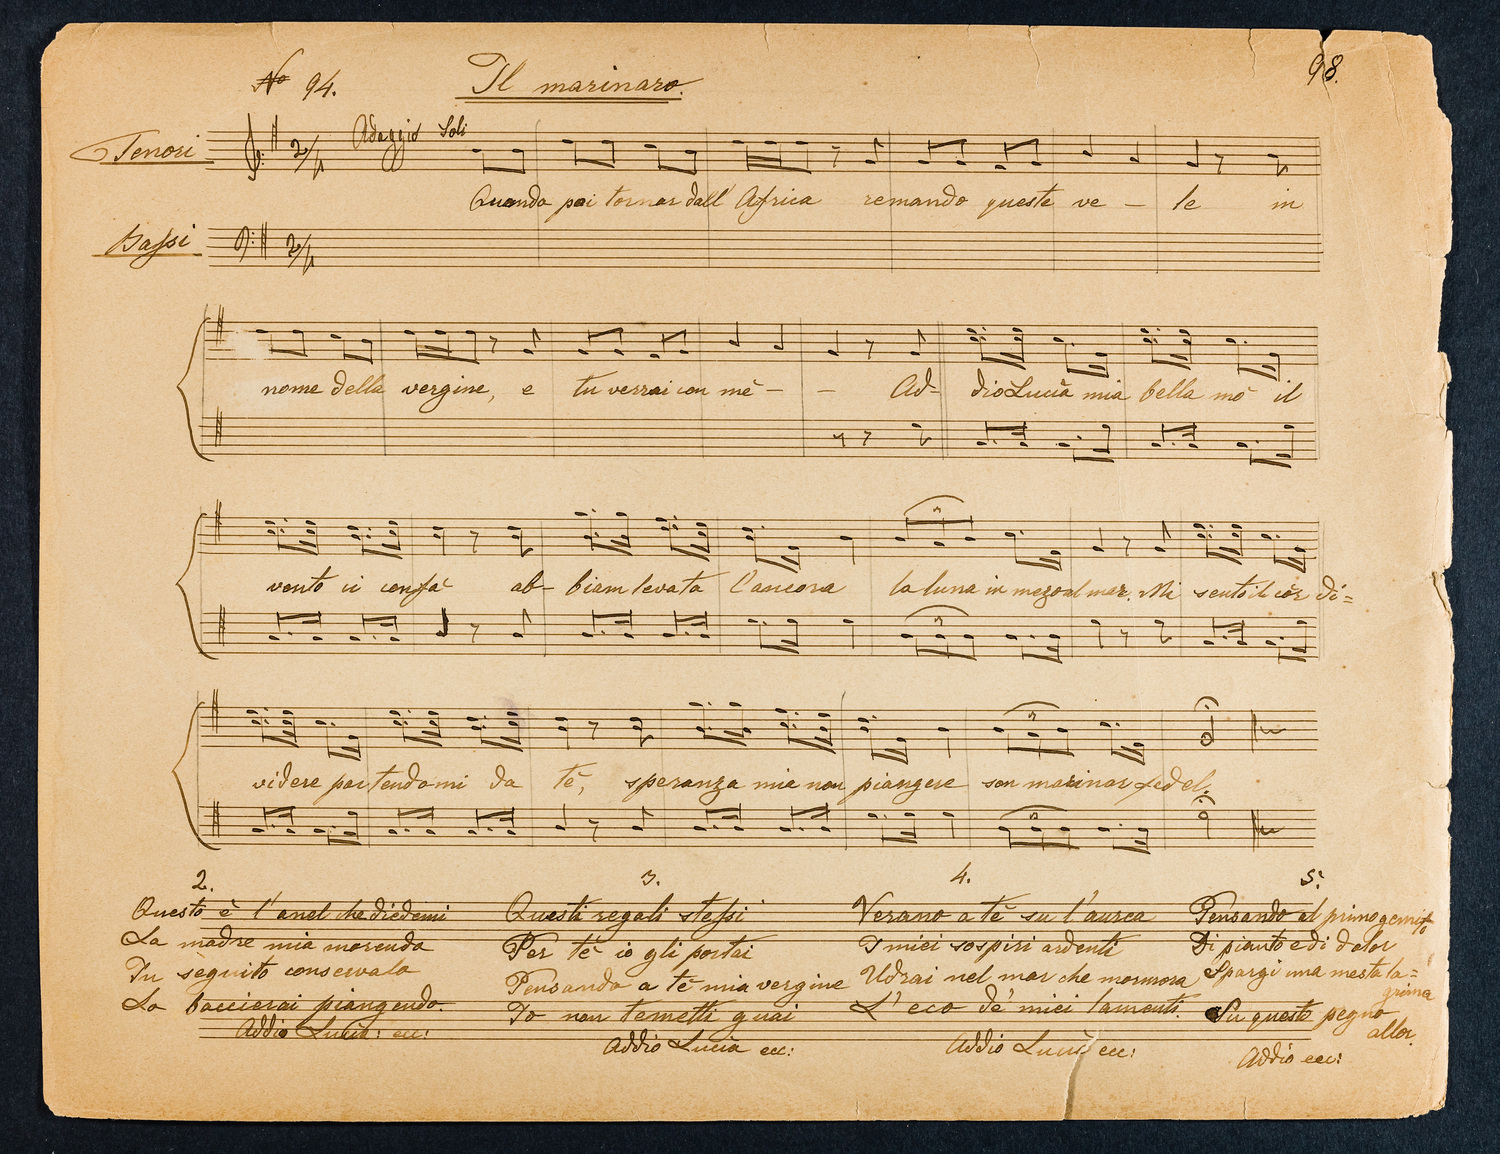 No 94.
Il marinaro.
98.
Tenori
Adaggio Soli
Quando poi tornar dall' Africa remando queste ve - le in
Bassi
nome della vergine, e tu verrai con mè - - Ad- dio Lucia mia bella mò il
vento ci confà ab- biam levata l'ancora la luna in mezo al mar. Mi sento il còr di=
videre partendomi da tè, speranza mia non piangere son marinar fedel.
2.
Questo è l'anel che diedemi
La madre mia morendo
Tu seguito conservalo
Lo baccierai piangendo.
Addio Lucia: ecc:
3.
Questi regali stessi
Per tè io gli portai
Pensando a tè mia vergine
Io non temetti guai
Addio Lucia ecc:
4.
Verano a tè su l'aurea
I miei sospiri ardenti
Udrai nel mar che mormora
L'eco de' miei lamenti.
Addio Lucia ecc:
5.
Pensando al primo gemito
Di pianto e di dolor
Spargi una mesta la=
grima
Su questo pegno
allor.
Addio ecc: